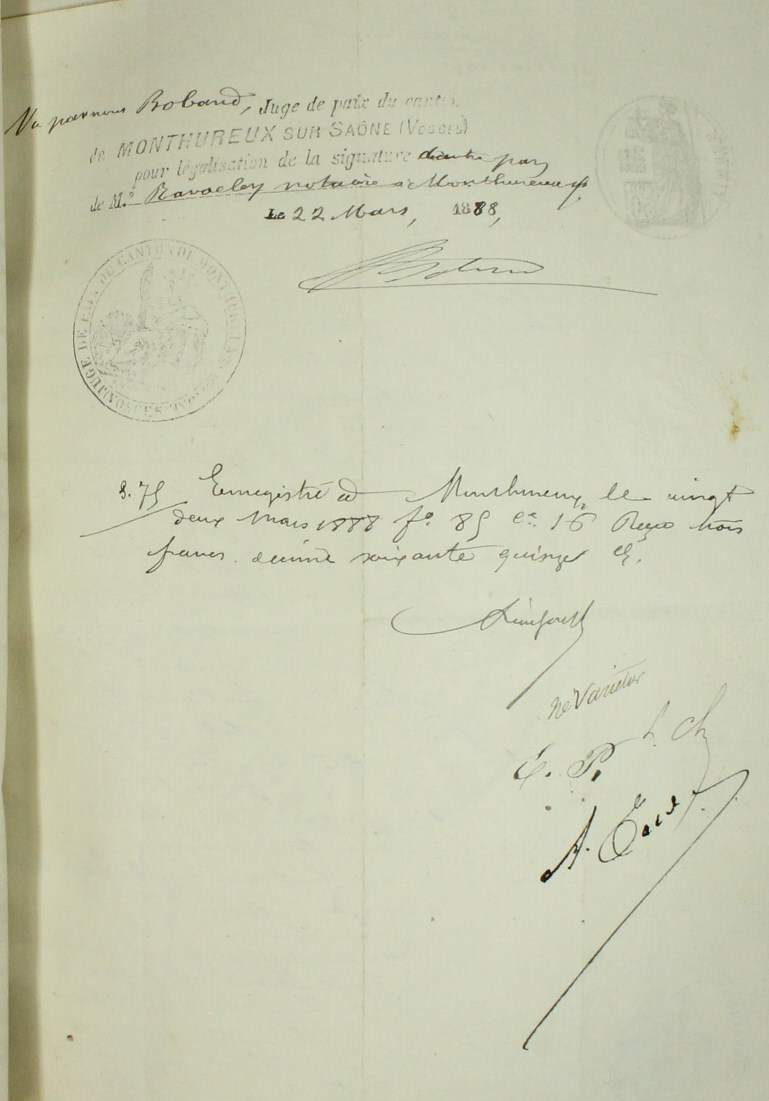 Vu par nous Boband, Juge de paix du canton
de MONTHUREUX SUR SAÔNE (Vosges)
pour légalisation de la signature d'autre part
de M.e Ravacley notaire à Monthureux s/s.
Le 22 Mars, 1888,
JUGE DE PAIX DU CANTON DE MONTHUREUX
3.75 Enregistré à Monthureux le vingt
deux Mars 1888 f.o 85 c.e 16 Reçu trois
francs decime soixante quinze c.
Ne Varietur
E. P. L. Ch